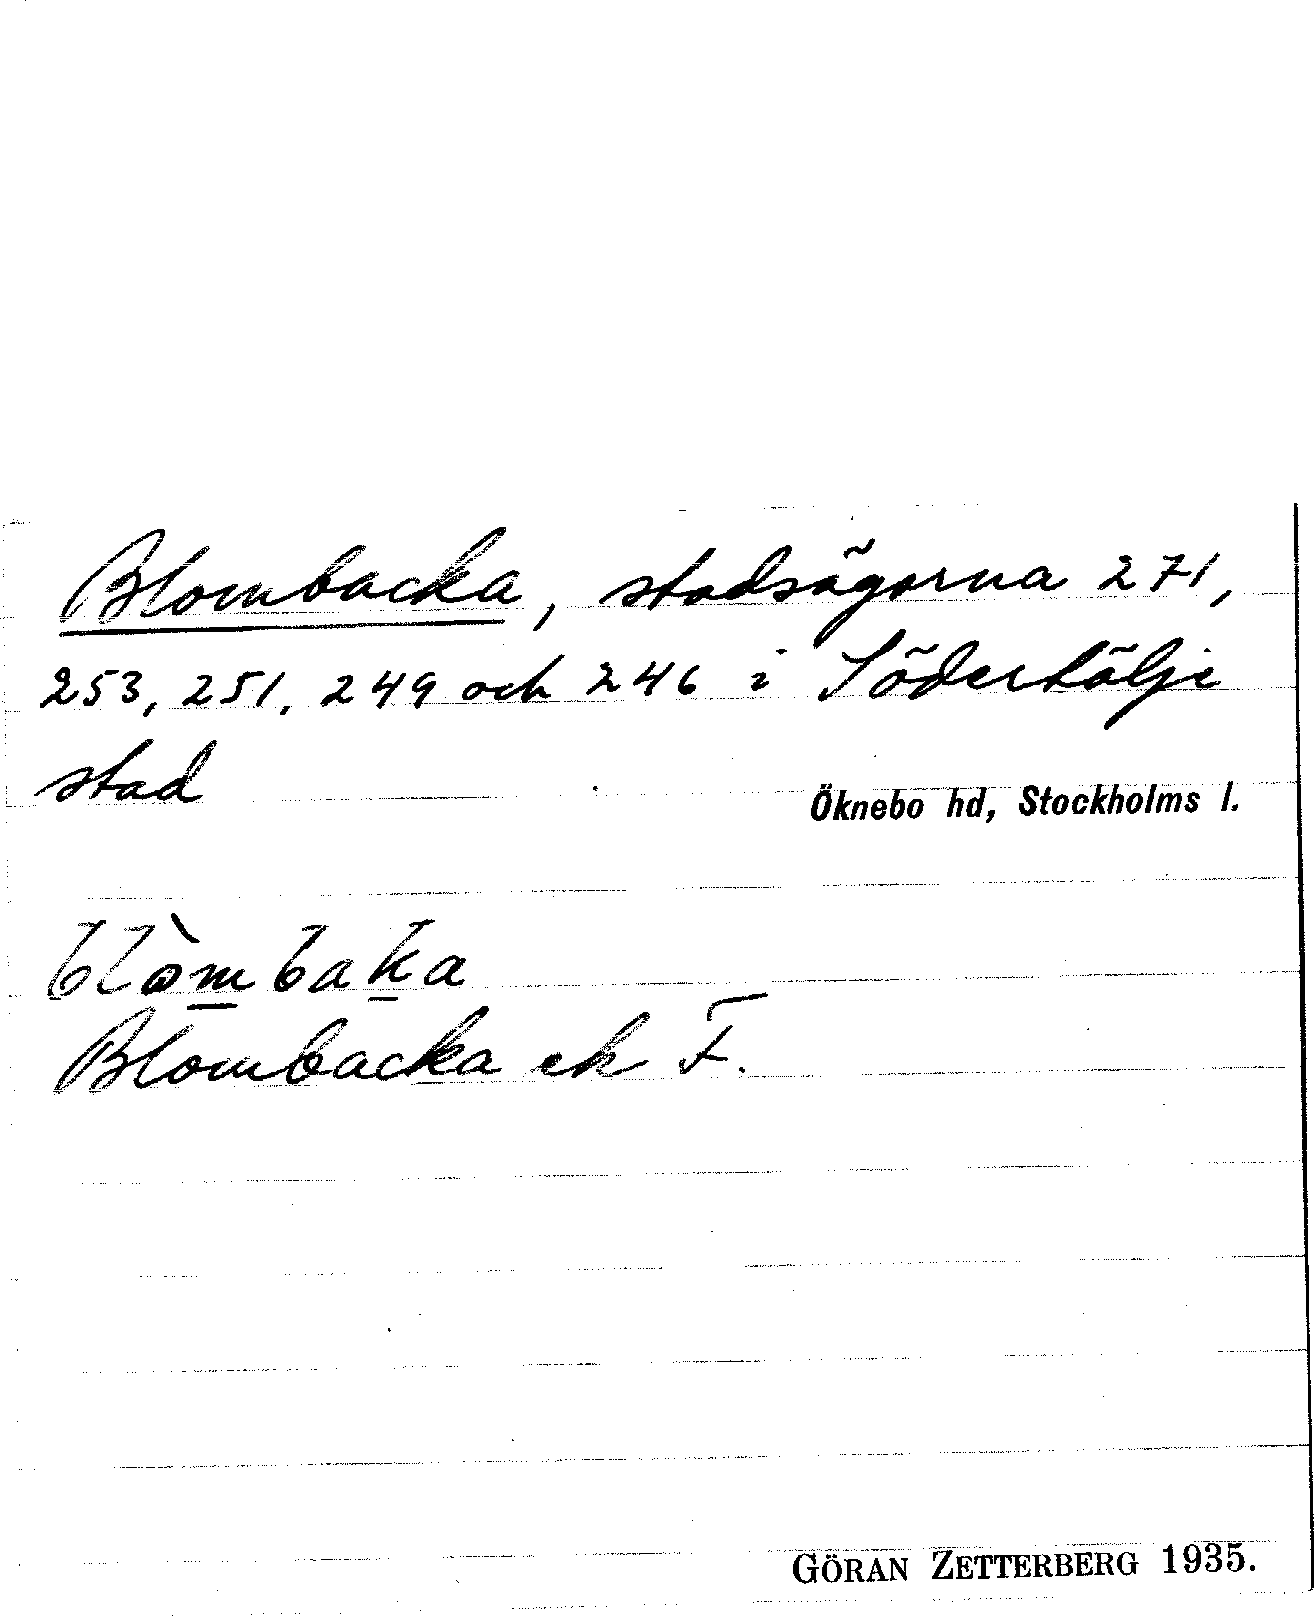 Blombacka, stadsägorna 271,
253, 251, 249 och 246 i Södertälje
stad
Öknebo hd, Stockholms l.
blòmbaka
Blombacka ek F.
GÖRAN ZETTERBERG 1935.